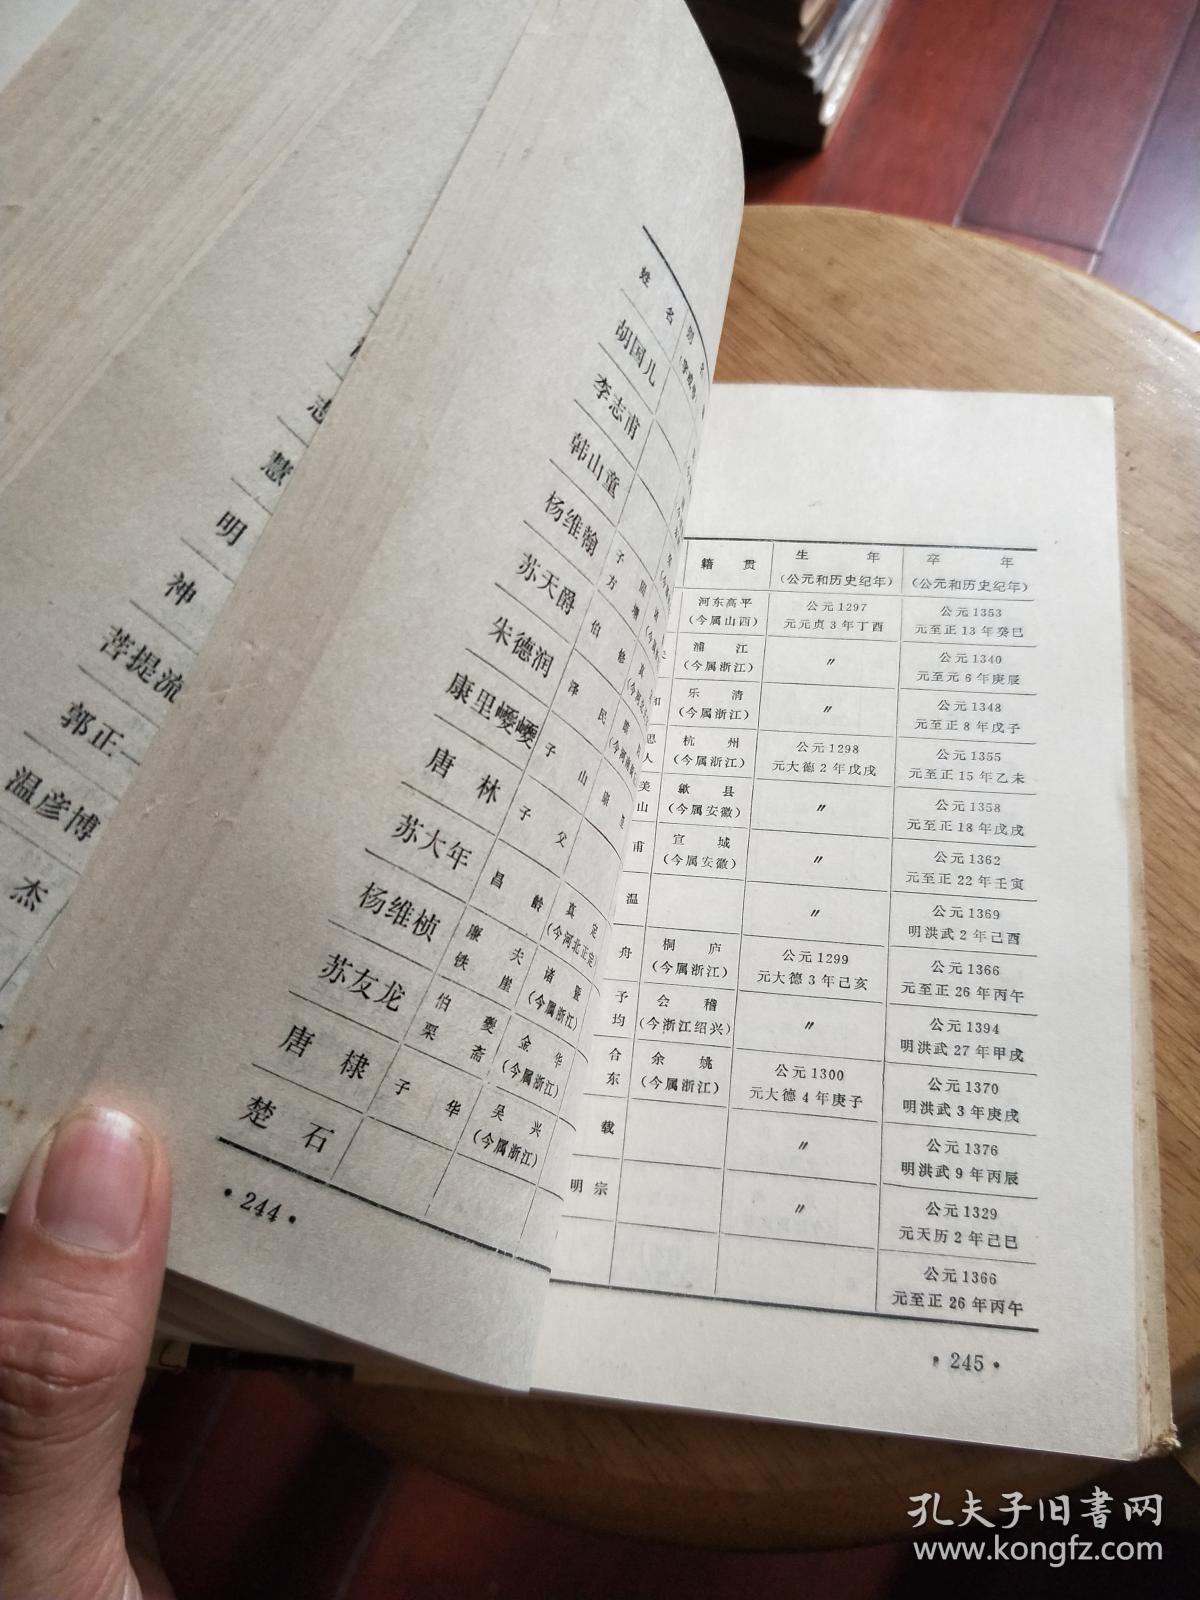 志
慧
明
神
菩提流
郭正一
温彦博
杰
姓 名
胡国儿
李志甫
韩山童
杨维翰 子方
苏天爵 伯修
朱德润 泽民
康里巎巎 子山
唐林 子父
苏大年 昌龄 真定 (今河北正定)
杨维桢 廉夫 铁崖 诸暨 (今属浙江)
苏友龙 伯夔 栗斋 金华 (今属浙江)
唐棣 子华 吴兴 (今属浙江)
楚石
·244·
籍贯 生年 (公元和历史纪年) 卒年 (公元和历史纪年)
河东高平 (今属山西) 公元1297 元元贞3年丁酉 公元1353 元至正13年癸巳
浦江 (今属浙江) 〃 公元1340 元至元6年庚辰
和 乐清 (今属浙江) 〃 公元1348 元至正8年戊子
思人 杭州 (今属浙江) 公元1298 元大德2年戊戌 公元1355 元至正15年乙未
美山 歙县 (今属安徽) 〃 公元1358 元至正18年戊戌
甫 宣城 (今属安徽) 〃 公元1362 元至正22年壬寅
温 〃 公元1369 明洪武2年己酉
舟 桐庐 (今属浙江) 公元1299 元大德3年己亥 公元1366 元至正26年丙午
予均 会稽 (今浙江绍兴) 〃 公元1394 明洪武27年甲戌
合东 余姚 (今属浙江) 公元1300 元大德4年庚子 公元1370 明洪武3年庚戌
载 〃 公元1376 明洪武9年丙辰
明宗 〃 公元1329 元天历2年己巳
公元1366 元至正26年丙午
·245·
孔夫子旧书网
www.kongfz.com